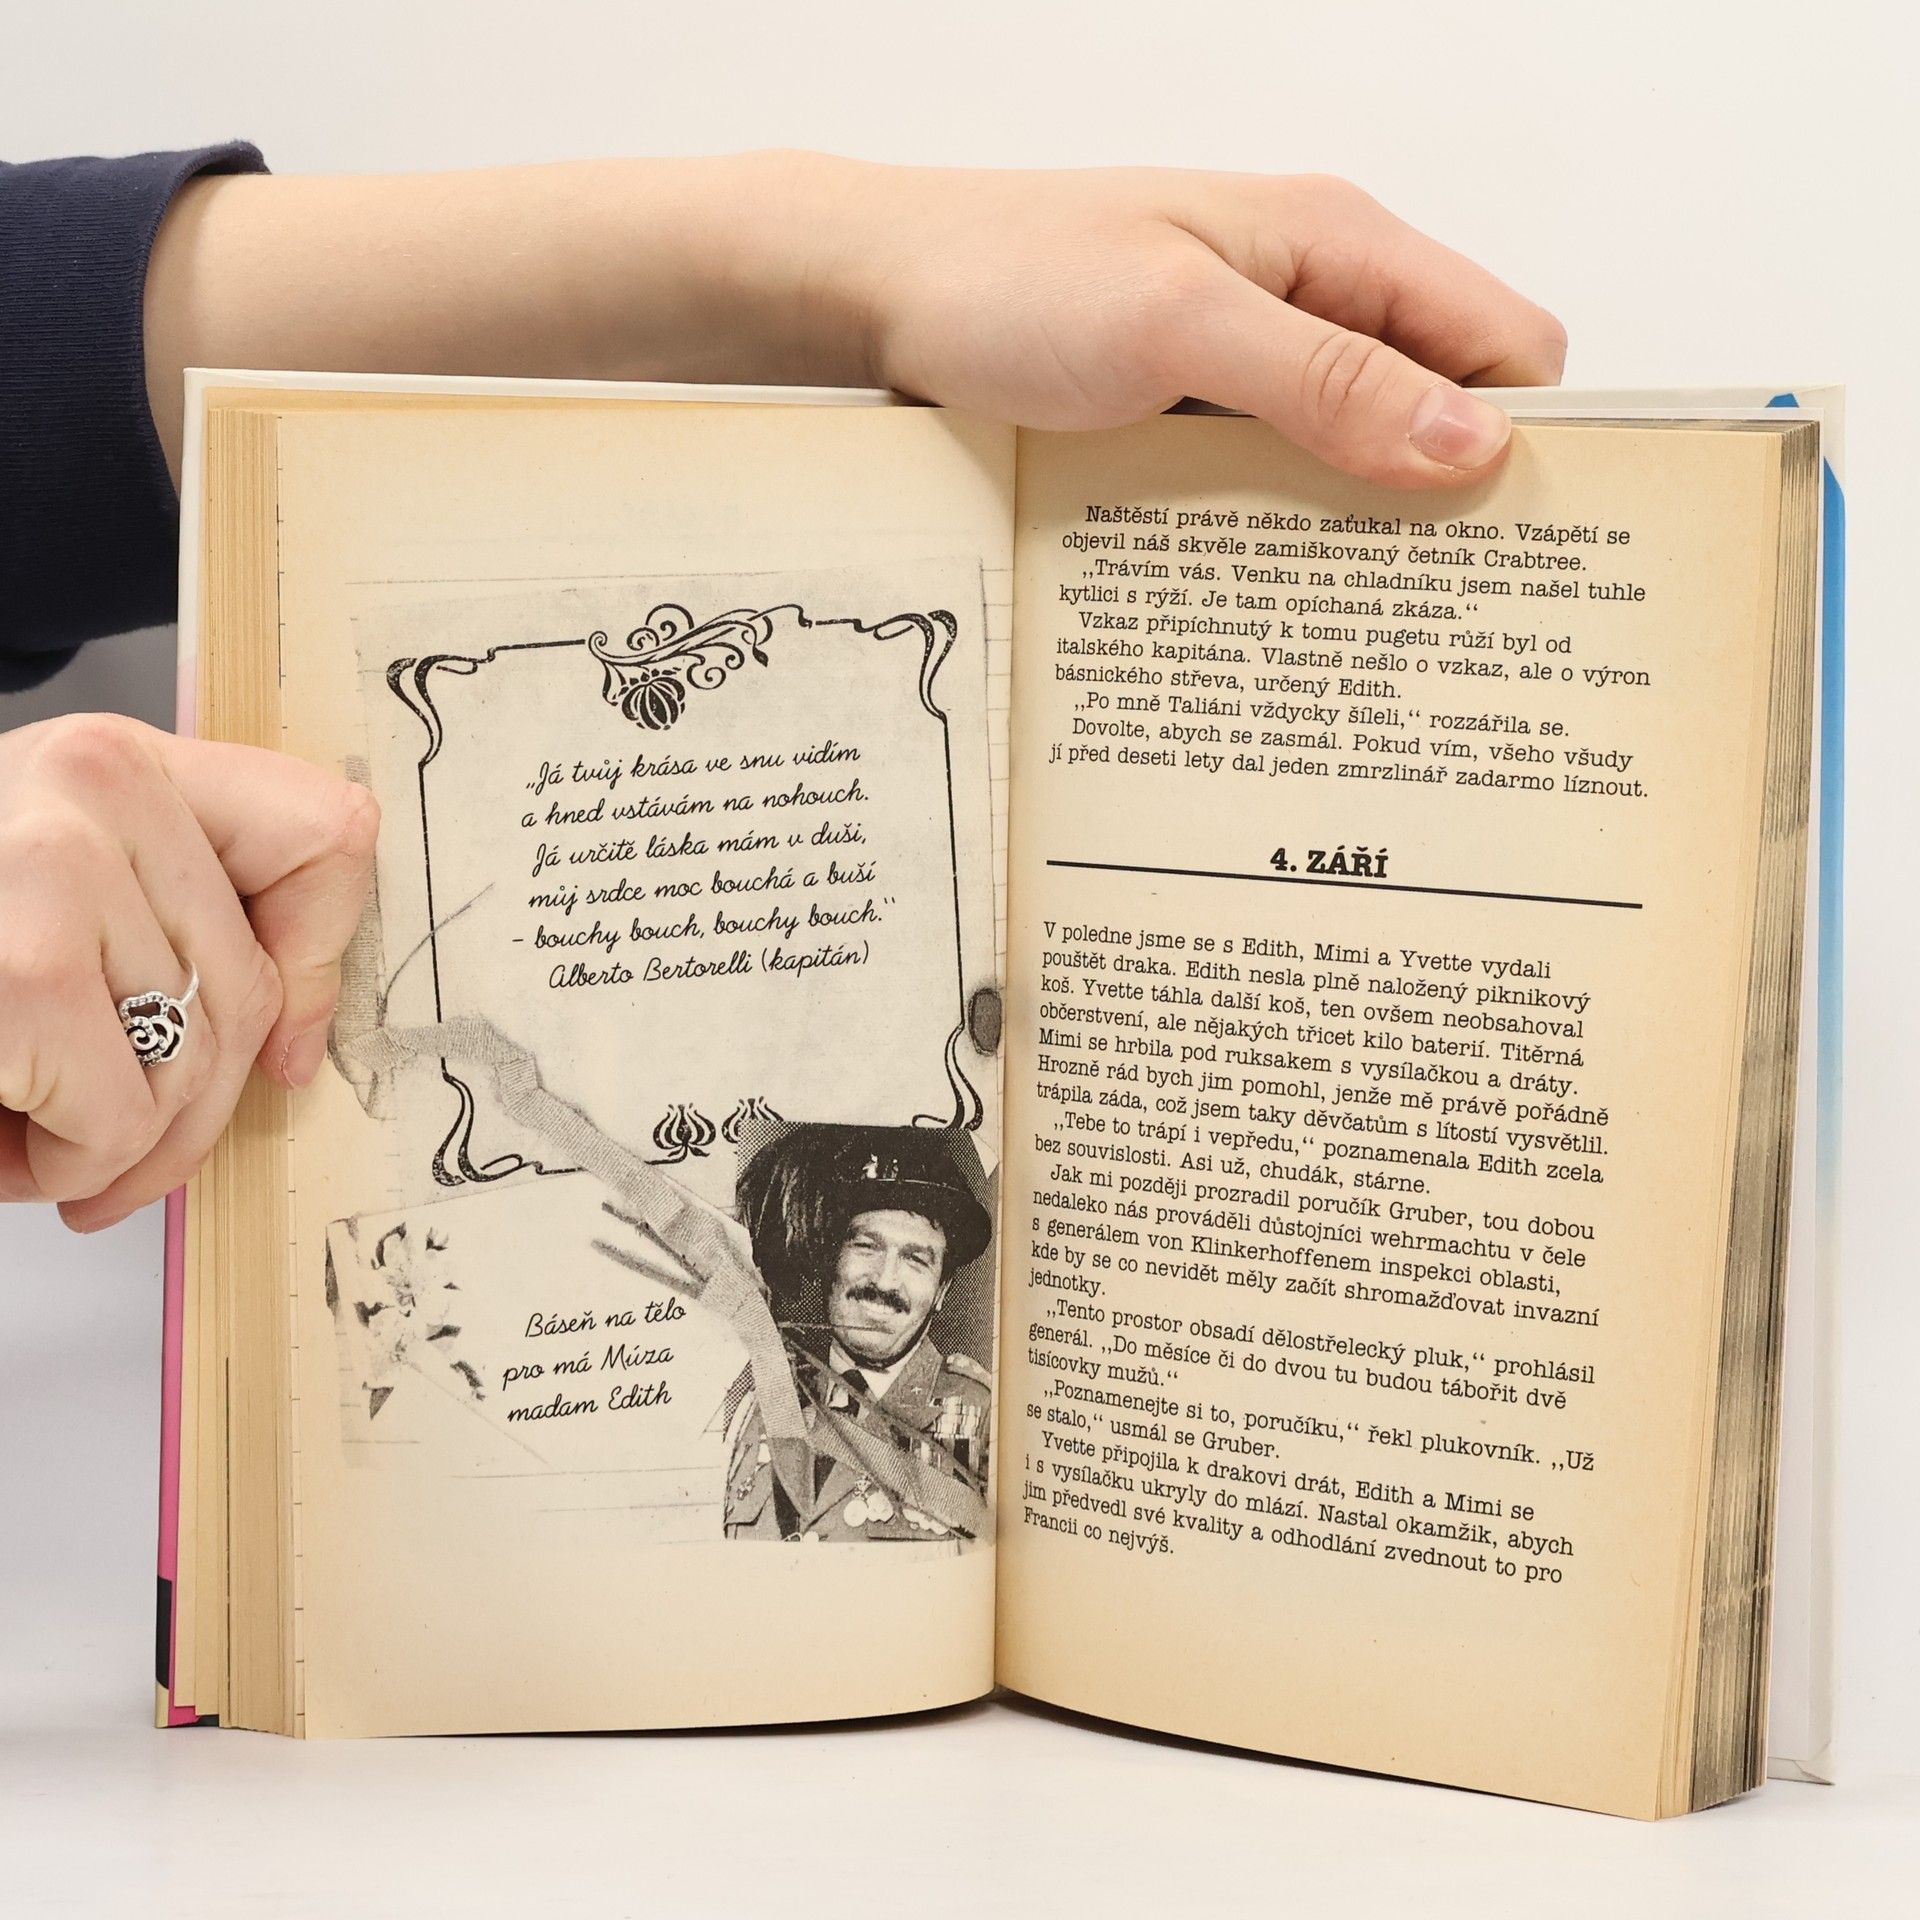 „Já tvůj krása ve snu vidím
a hned vstávám na nohouch.
Já určitě láska mám v duši,
můj srdce moc bouchá a buší
– bouchy bouch, bouchy bouch.“
Alberto Bertorelli (kapitán)
Báseň na tělo
pro má Múza
madam Edith
Naštěstí právě někdo zaťukal na okno. Vzápětí se
objevil náš skvěle zamiškovaný četník Crabtree.
„Trávím vás. Venku na chladníku jsem našel tuhle
kytlici s rýží. Je tam opíchaná zkáza.“
Vzkaz připíchnutý k tomu pugetu růží byl od
italského kapitána. Vlastně nešlo o vzkaz, ale o výron
básnického střeva, určený Edith.
„Po mně Taliáni vždycky šíleli,“ rozzářila se.
Dovolte, abych se zasmál. Pokud vím, všeho všudy
jí před deseti lety dal jeden zmrzlinář zadarmo líznout.
4. ZÁŘÍ
V poledne jsme se s Edith, Mimi a Yvette vydali
pouštět draka. Edith nesla plně naložený piknikový
koš. Yvette táhla další koš, ten ovšem neobsahoval
občerstvení, ale nějakých třicet kilo baterií. Titěrná
Mimi se hrbila pod ruksakem s vysílačkou a dráty.
Hrozně rád bych jim pomohl, jenže mě právě pořádně
trápila záda, což jsem taky děvčatům s lítostí vysvětlil.
„Tebe to trápí i vepředu,“ poznamenala Edith zcela
bez souvislosti. Asi už, chudák, stárne.
Jak mi později prozradil poručík Gruber, tou dobou
nedaleko nás prováděli důstojníci wehrmachtu v čele
s generálem von Klinkerhoffenem inspekci oblasti,
kde by se co nevidět měly začít shromažďovat invazní
jednotky.
„Tento prostor obsadí dělostřelecký pluk,“ prohlásil
generál. „Do měsíce či do dvou tu budou tábořit dvě
tisícovky mužů.“
„Poznamenejte si to, poručíku,“ řekl plukovník. „Už
se stalo,“ usmál se Gruber.
Yvette připojila k drakovi drát, Edith a Mimi se
i s vysílačku ukryly do mlází. Nastal okamžik, abych
jim předvedl své kvality a odhodlání zvednout to pro
Francii co nejvýš.